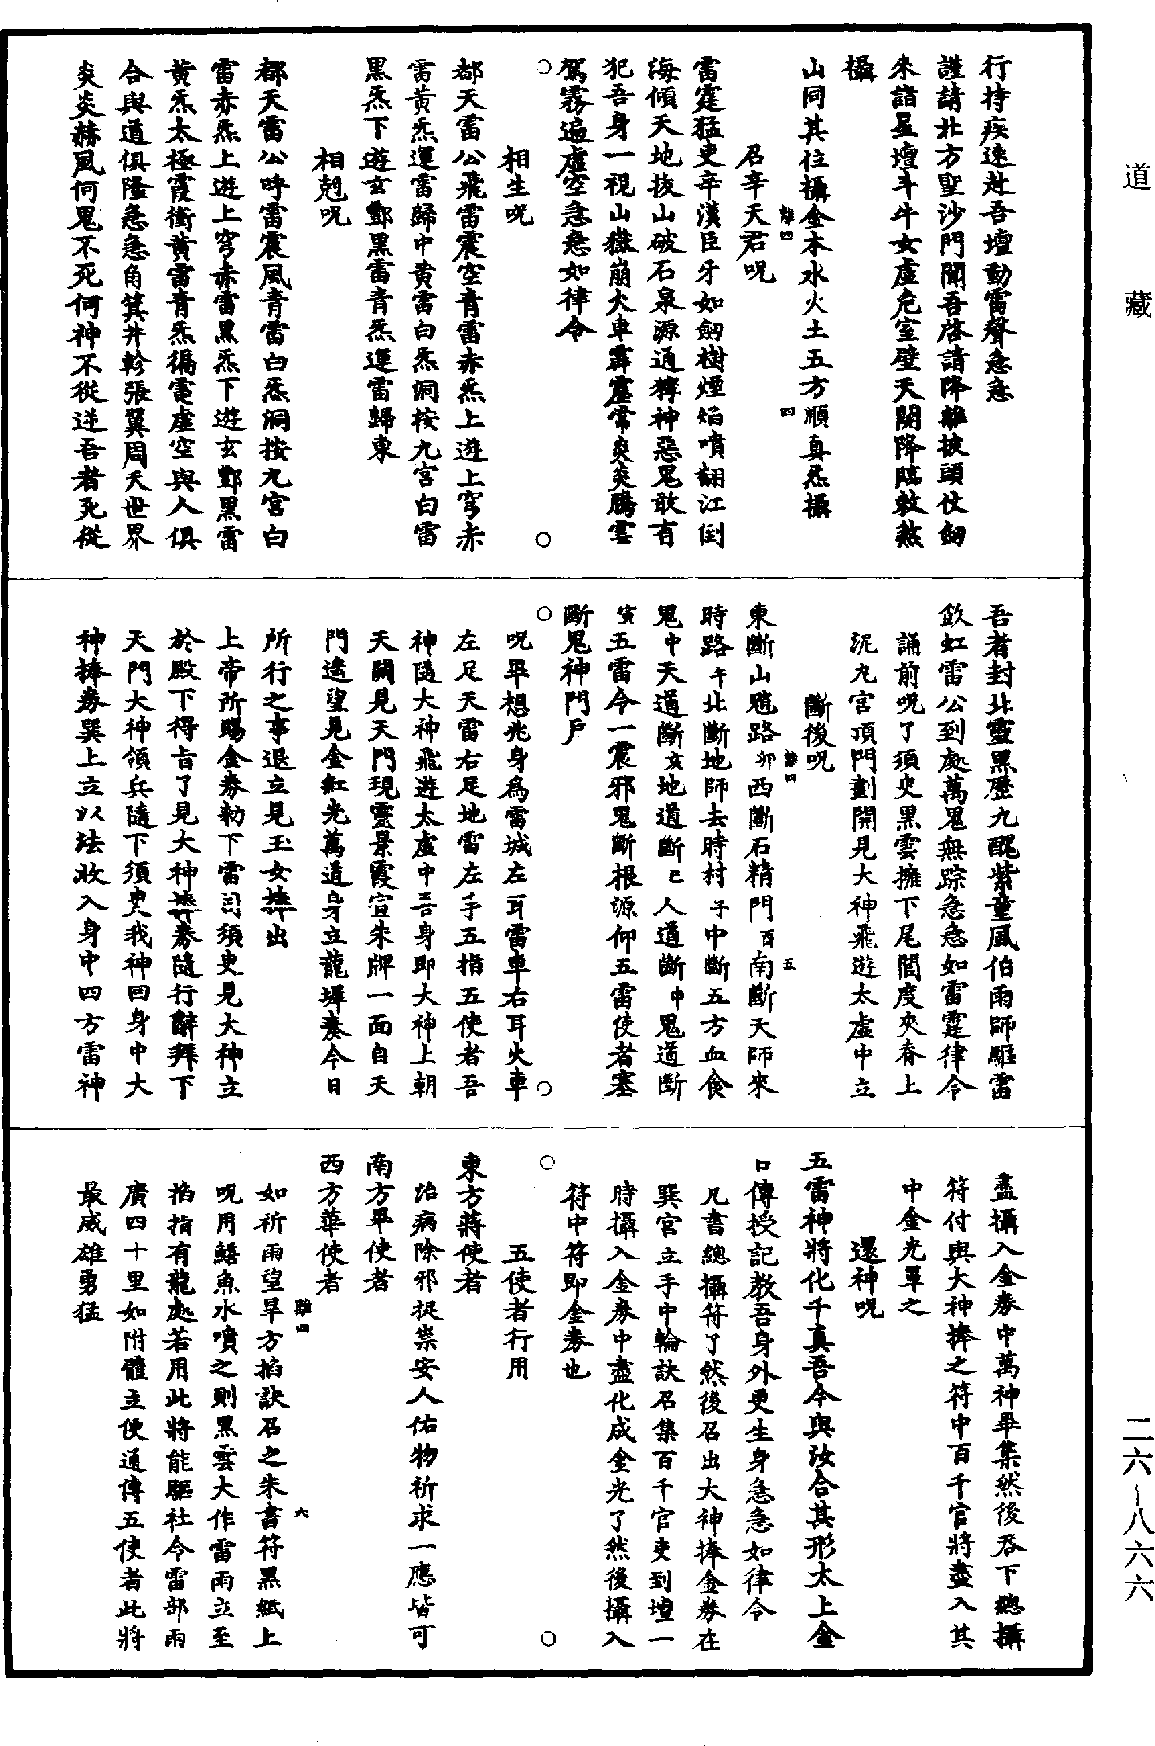 道藏
行持疾速赴吾壇動雷聲急急
謹請北方聖沙門聞吾啓請降離披頭仗劒
來詣星壇斗牛女虛危室壁天關降臨敕煞
攝
山同其位攝金木水火土五方順真炁攝
召辛天君呪
雷霆猛吏辛漢臣牙如劒樹煙焰噴翻江倒
海傾天地拔山破石泉源通獰神惡鬼敢有
犯吾身一視山嶽崩火車霹靂常炎炎鵰雲
駕霧遍虛空急急如律令
相生呪
都天雷公飛雷震空青雷赤炁上遊上穹赤
雷黃炁運雷歸中黃雷白炁洞按九宮白雷
黑炁下遊玄酆黑雷青炁運雷歸東
相剋呪
都天雷公呼雷震風青雷白炁洞按九宮白
雷赤炁上遊上穹赤雷黑炁下遊玄酆黑雷
黃炁太極霞衝黃雷青炁徧霆虛空與人俱
合與道俱隆急急角箕井軫張翼周天世界
炎炎赫風何鬼不死何神不從逆吾者死從
吾者封北靈黑歷九醜紫童風伯雨師驅雷
歘虹雷公到處萬鬼無踪急急如雷霆律令
誦前呪了須臾黑雲擁下尾閭度夾脊上
泥丸宮頂門劃開見大神飛遊太虛中立
斷後呪
東斷山魈路卯西斷石精門酉南斷天師來
時路午北斷地師去時村子中斷五方血食
鬼中天道斷亥地道斷巳人道斷申鬼道斷
寅五雷令一震邪鬼斷根源仰五雷使者塞
斷鬼神門戶
呪畢想兆身爲雷城左耳雷車右耳火車
左足天雷右足地雷左手五指五使者吾
神隨大神飛遊太虛中吾身即大神上朝
天闕見天門現靈景霞宣朱牌一面自天
門遙望見金紅光萬道身立龍墀奏今日
所行之事退立見玉女捧出
上帝所賜金劵勑下雷司須臾見大神立
於殿下得旨了見大神捧劵隨行辭拜下
天門大神領兵隨下須臾我神回身中大
神捧劵巽上立以法收入身中四方雷神
盡攝入金劵中萬神畢集然後吞下總攝
符付與大神捧之符中百千官將盡入其
中金光罩之
還神呪
五雷神將化千真吾今與汝合其形太上金
口傳授記教吾身外更生身急急如律令
凡書總攝符了然後召出大神捧金劵在
巽宮立手中輪訣召集百千官吏到壇一
時攝入金劵中盡化成金光了然後攝入
符中符即金劵也
五使者行用
東方蔣使者
治病除邪捉祟安人佑物祈求一應皆可
南方畢使者
西方華使者
如祈雨望旱方掐訣召之朱書符黑紙上
呪用鱔魚水噴之則黑雲大作雷雨立至
掐指有龍處若用此將能驅社令雷部雨
廣四十里如附體立便通傳五使者此將
最威雄勇猛
二六-八六六